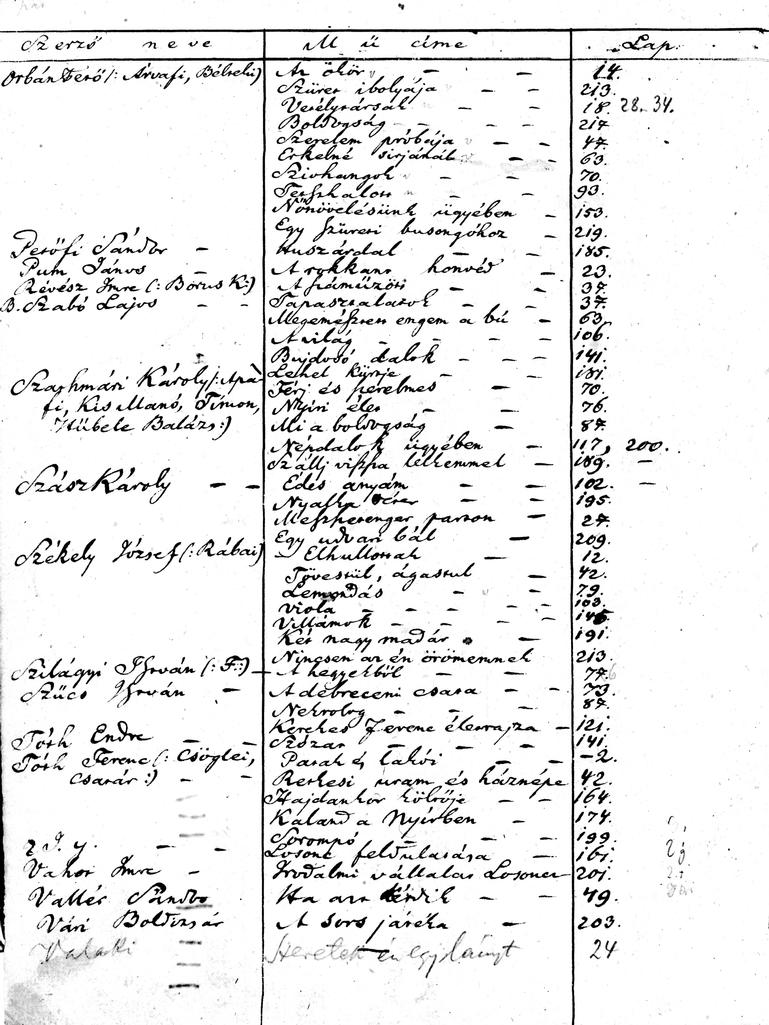 Szerző neve Mű címe Lap.
Orbán Pető (: Árvafi, Bélteleki) Az ökör — — 14.
Szüret ibolyája — — 213.
Vetélytársak — — 18. 28. 34.
Boldogság — — — 217
Szerelem próbája — — 47.
Erkelné sirjánál — — 63.
Szivhangok — — 70.
93.
Nőnövelésünk ügyében — 153.
Egy szüreti busongóhoz — 219.
Petőfi Sándor — Huszárdal — — 185.
Pum János — A rokkant honvéd — 23.
Révész Imre (: Borus K:) A száműzött — 37.
B. Szabó Lajos — — Tapasztalatok — — 37.
Megemésztett engem a bú — 63.
A világ — — — 106.
Bujdosó dalok — — 141.
Lehel kürtje — — 181.
Szathmári Károly (: Apá- Férj és szerelmes — 70.
fi, Kis Manó, Timon, Nyíri élet — — 76.
Hübele Balázs:) Mi a boldogság — 87.
Népdalok ügyében — 117, 200.
Szállj vissza lelkemmel — 189. —
Szász Károly — — Édes anyám — — 102. —
Nyalka — — 195.
Messze tenger parton — 27.
Egy udvari bál — 209.
Székely József (: Rábai) Elhullottak — 12.
Tövestül, ágastul — 42.
Lemondás — — 79.
Viola — — — — 103.
Villámok — — — — 146.
Két nagy madár — 191.
Nincsen az én örömemnek 213.
Szilágyi István (: F:) — A hegyekből — — 77.
Szűcs István — A debreceni csata — — 73.
Nekrolog — — — 87.
Kerekes Ferenc életrajza — 121.
Tóth Endre — — Szózat — — — — 141.
Tóth Ferenc (: Csöglei, Patak és — — 2.
csatár:) — — Retkesi uram és háznépe 42.
Hajdankor költője — — 164.
Kaland a Nyírben — 174.
Sorompó — — — 199.
Z. J. y. — — Losonc feldulatása — 161.
Vahot Imre — Irodalmi vállalat Losoncz— 201.
Vallér Sándor Ha azt — — 49.
Vári Boldizsár A sors játéka — 203.
Valaki Szeretek én egy leányt 24